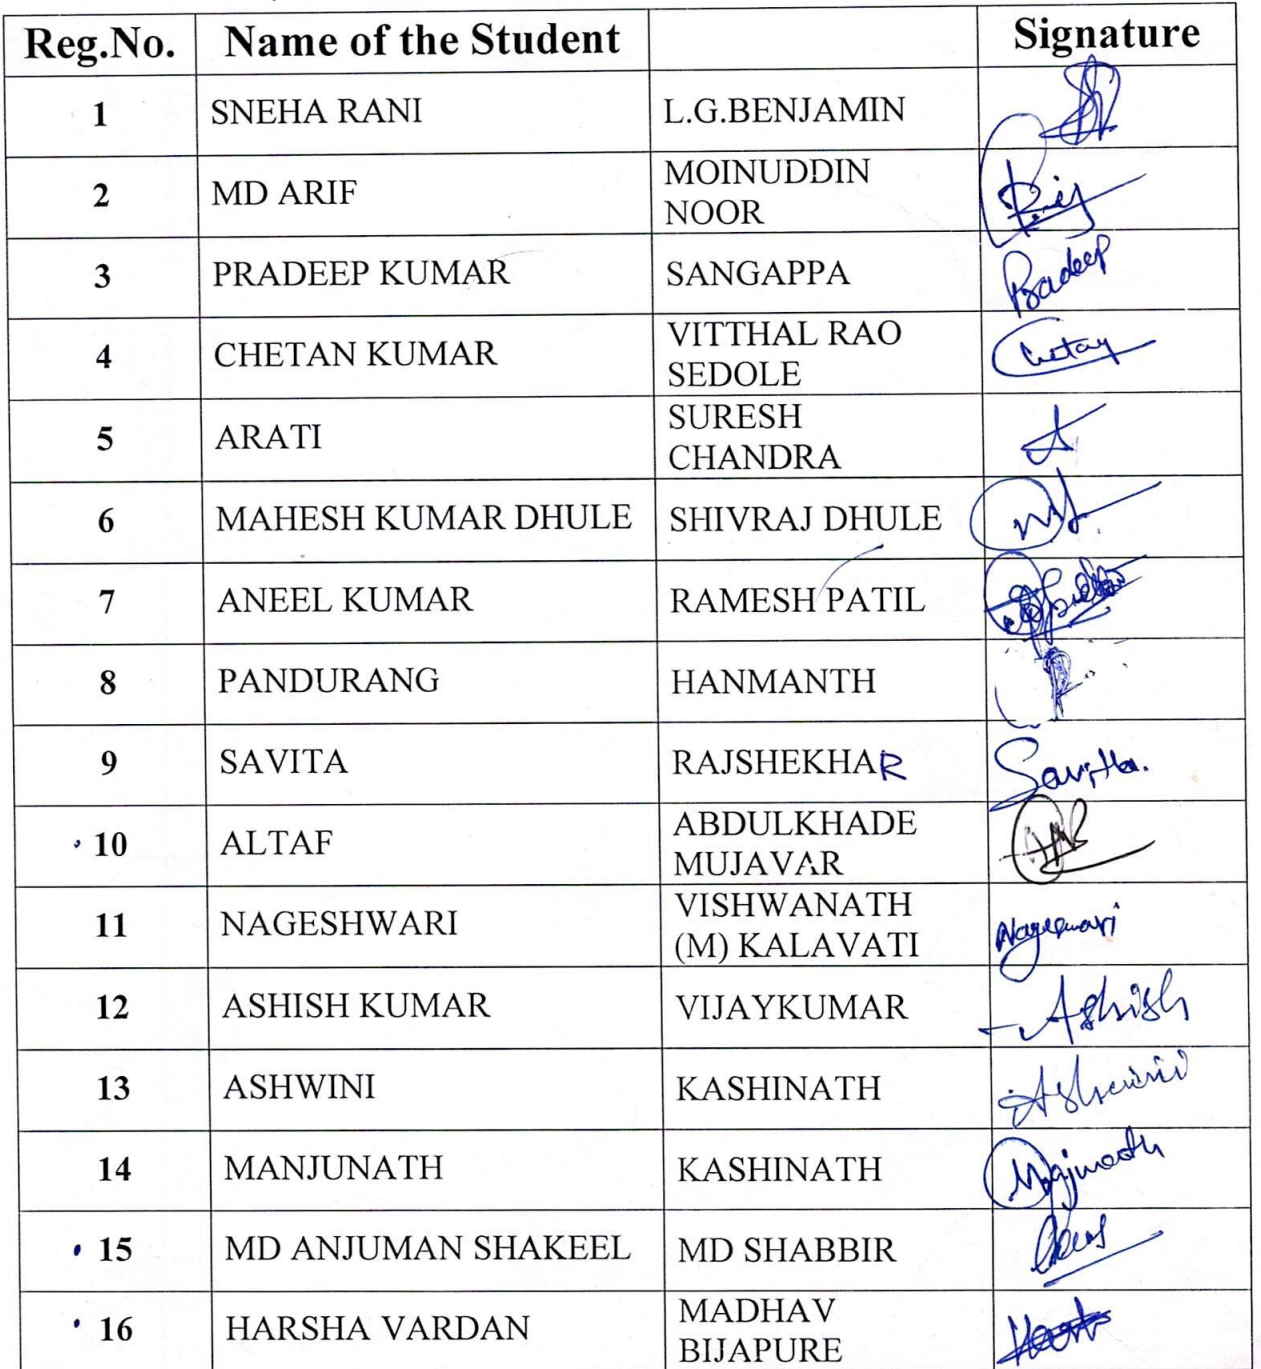 Reg.No. Name of the Student Signature
1 SNEHA RANI L.G.BENJAMIN
2 MD ARIF MOINUDDIN
NOOR
3 PRADEEP KUMAR SANGAPPA Pradeep
4 CHETAN KUMAR VITTHAL RAO
SEDOLE Chetan
5 ARATI SURESH
CHANDRA
6 MAHESH KUMAR DHULE SHIVRAJ DHULE
7 ANEEL KUMAR RAMESH PATIL
8 PANDURANG HANMANTH
9 SAVITA RAJSHEKHAR Savitha.
10 ALTAF ABDULKHADE
MUJAVAR
11 NAGESHWARI VISHWANATH
(M) KALAVATI Nageswari
12 ASHISH KUMAR VIJAYKUMAR Ashish
13 ASHWINI KASHINATH Ashwini
14 MANJUNATH KASHINATH
15 MD ANJUMAN SHAKEEL MD SHABBIR
16 HARSHA VARDAN MADHAV
BIJAPURE